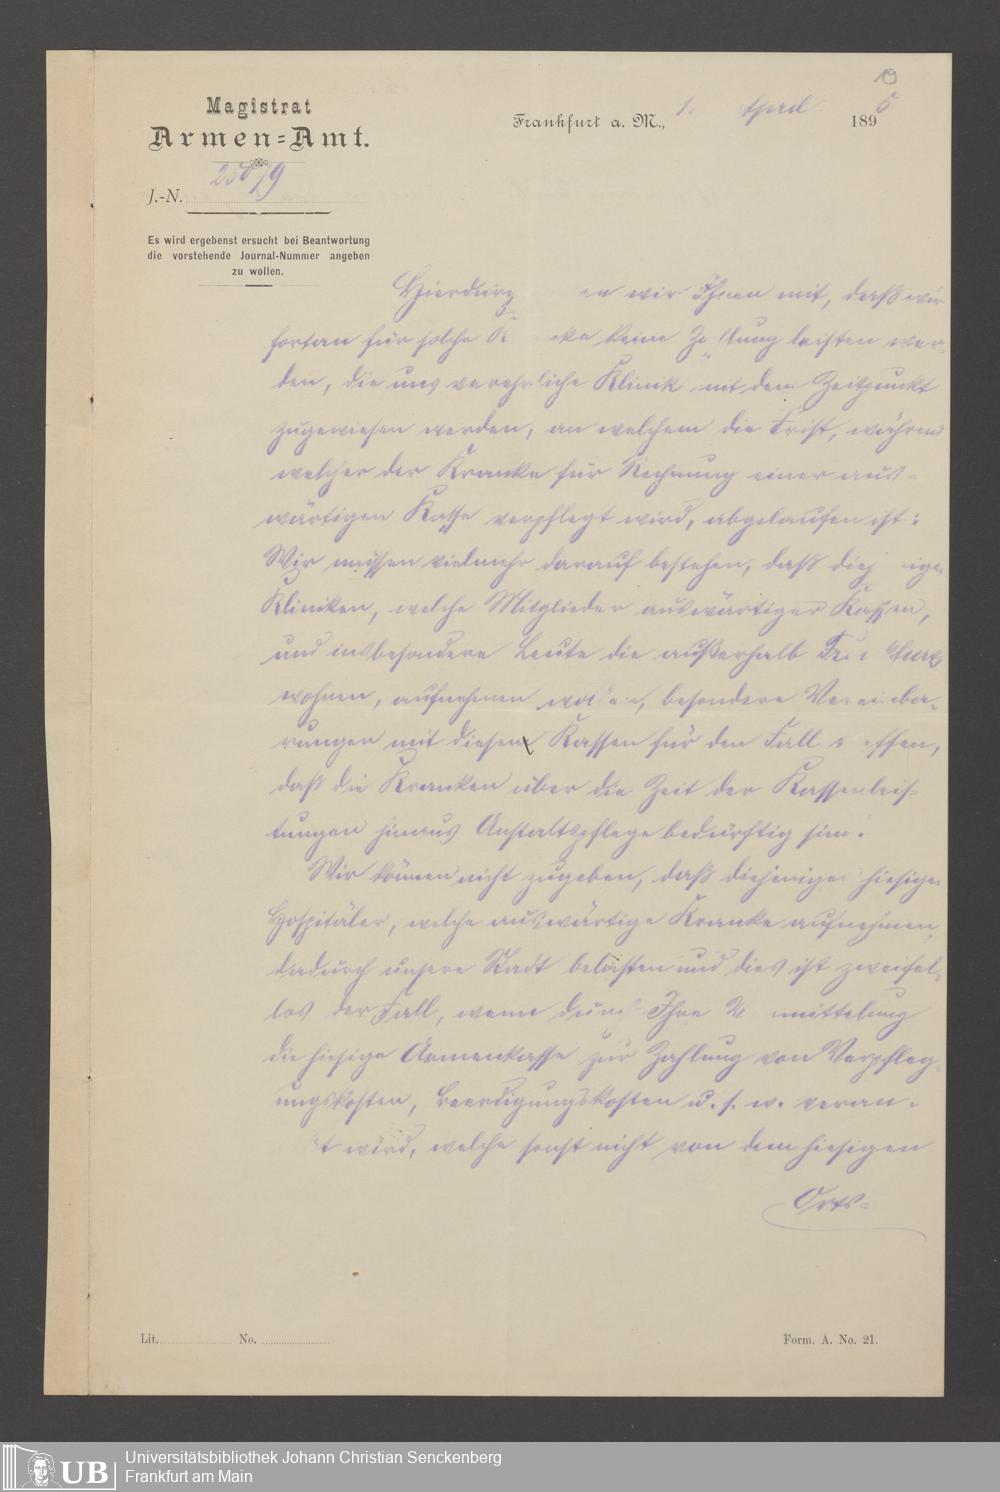 19
Magistrat
Armen=Amt.
Frankfurt a. M., 1. April 1895
J.-N. 25079
Es wird ergebenst ersucht bei Beantwortung
die vorstehende Journal-Nummer angeben
zu wollen.
wir Ihnen mit, daß wir
fortan für solche keine leisten wer-
den, die uns verehrliche Klinik mit dem Zeitpunkt
zugewiesen werden, an welchem die Frist, während
welcher der Kranke für Rechnung einer aus-
wärtigen Kasse verpflegt wird, abgelaufen ist:
Wir müssen vielmehr darauf bestehen, daß
Kliniken, welche Mitglieder auswärtiger Kassen,
und insbesondere Leute die außerhalb
wohnen, aufnehmen besondere
rungen mit diesen Kassen für den Fall
daß die Kranken über die Zeit der Kassenleis=
tungen hinaus Anstaltspflege bedürftig
Wir können nicht zugeben, daß diejenigen hiesigen
Hospitäler, welche auswärtige Kranke aufnehmen,
dadurch unsere Stadt belasten und dies ist zweifel-
los der Fall, wenn durch Ihre
die hiesige Armenkasse zur Zahlung von Verpfleg-
ungskosten, Beerdigungskosten u. s. w. veran-
wird, welche sonst nicht von dem hiesigen
Orts=
Lit. No. Form. A. No. 21.
UB
Universitätsbibliothek Johann Christian Senckenberg
Frankfurt am Main